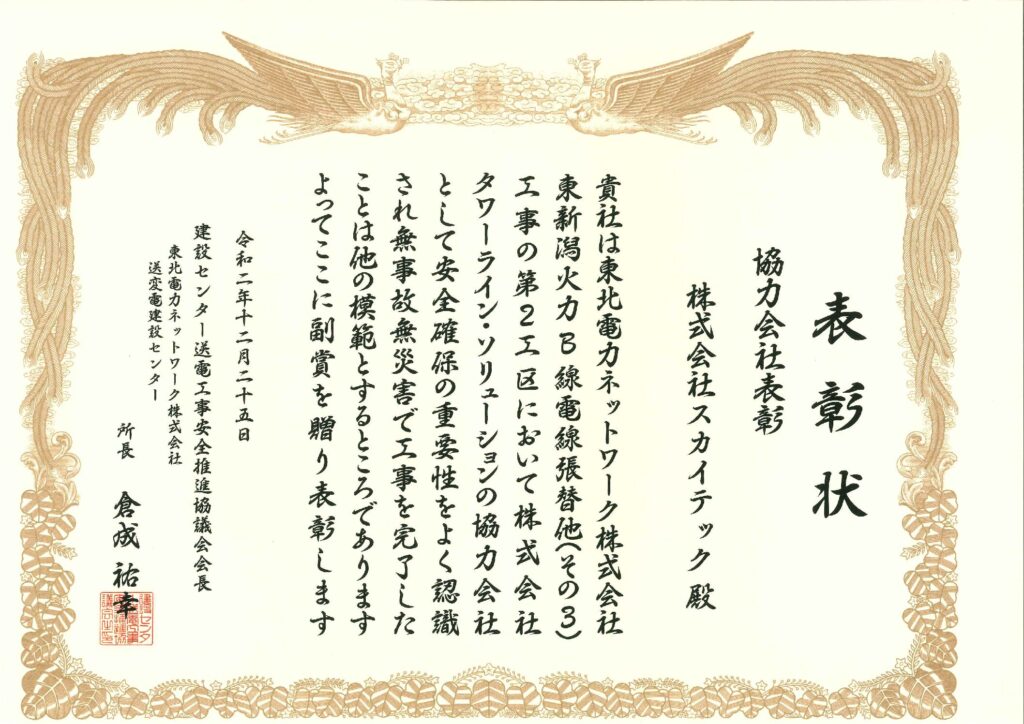 表彰状
協力会社表彰
株式会社スカイテック 殿
貴社は東北電力ネットワーク株式会社
東新潟火力B線電線張替他(その3)
工事の第2工区において株式会社
タワーライン・ソリューションの協力会社
として安全確保の重要性をよく認識
され無事故無災害で工事を完了した
ことは他の模範とするところであります
よってここに副賞を贈り表彰します
令和二年十二月二十五日
建設センター送電工事安全推進協議会会長
東北電力ネットワーク株式会社
送変電建設センター
所長 倉成祐幸